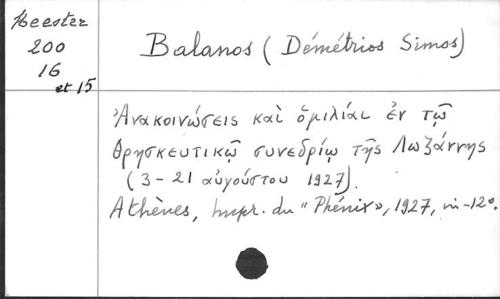 Heester
200
16
et 15
Balanos (Démétrios Simos)
Ἀνακοινώσεις καὶ ὁμιλίαι ἐν τῷ
Θρησκευτικῷ συνεδρίῳ τῆς Λωζάννης
(3-21 αὐγούστου 1927).
Athènes, Impr. du "Phénix", 1927, in-12º.